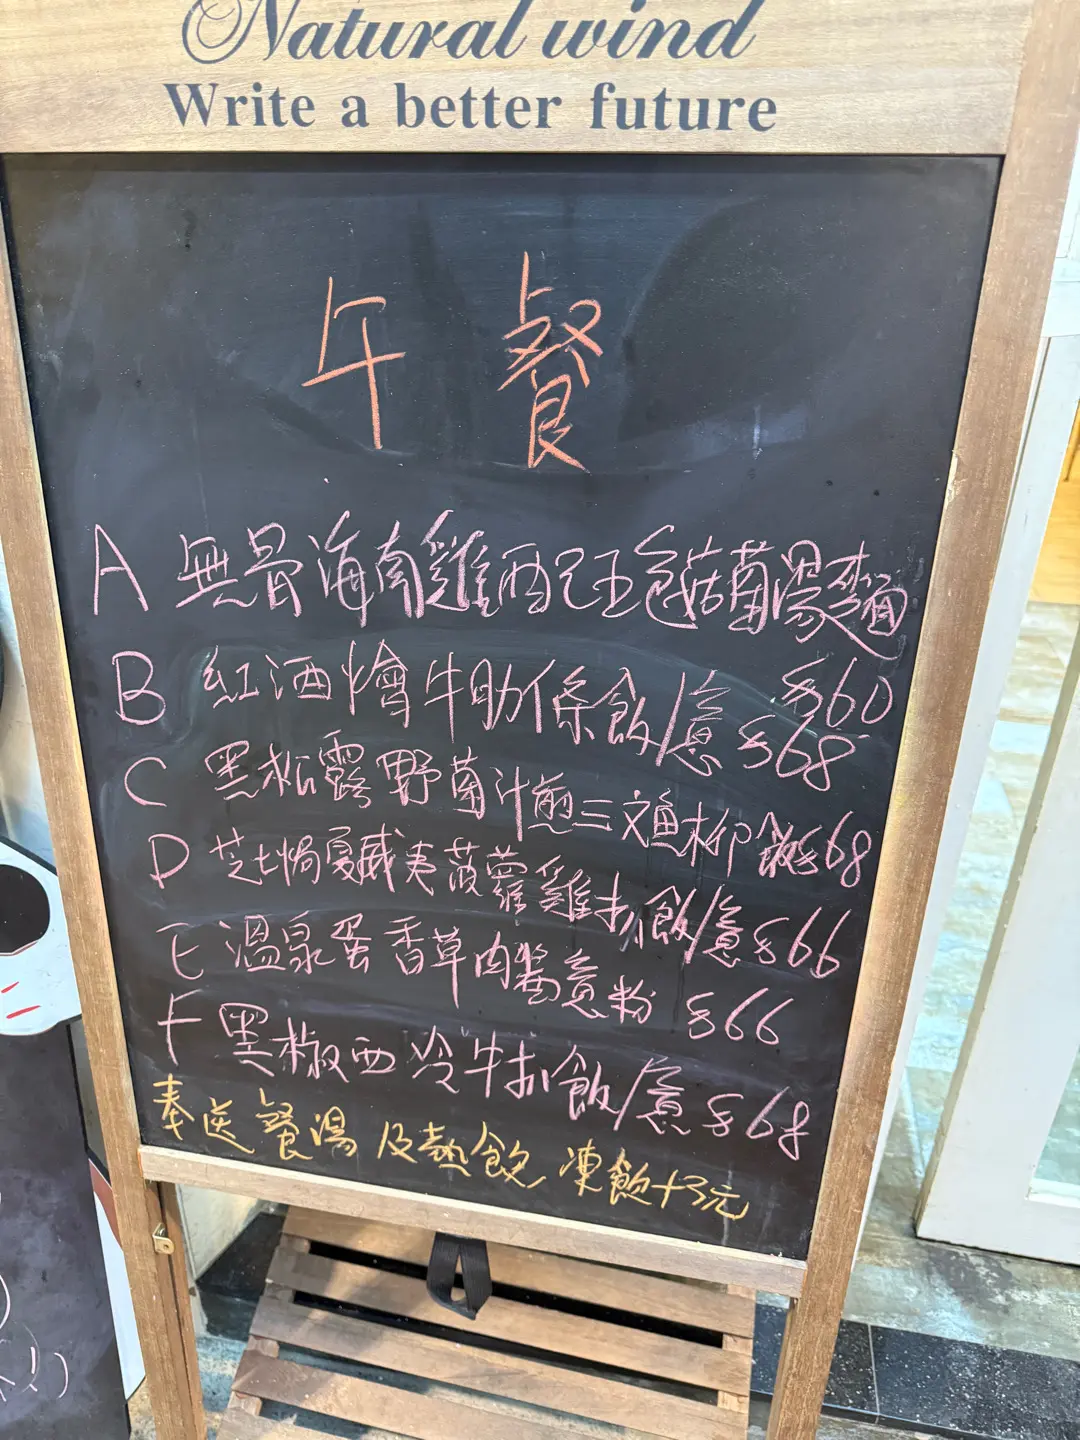 Natural wind
Write a better future
午餐
A 無骨海南雞西已王包菇菌湯麵
$60
B 紅酒燴牛肋條飯/意 $68
C 黑松露野菌汁煎三文魚柳飯$68
D 芝士焗夏威夷菠蘿雞扒飯/意$66
E 溫泉蛋香草肉醬意粉 $66
F 黑椒西冷牛扒飯/意$68
奉送餐湯及熱飲 凍飲+3元